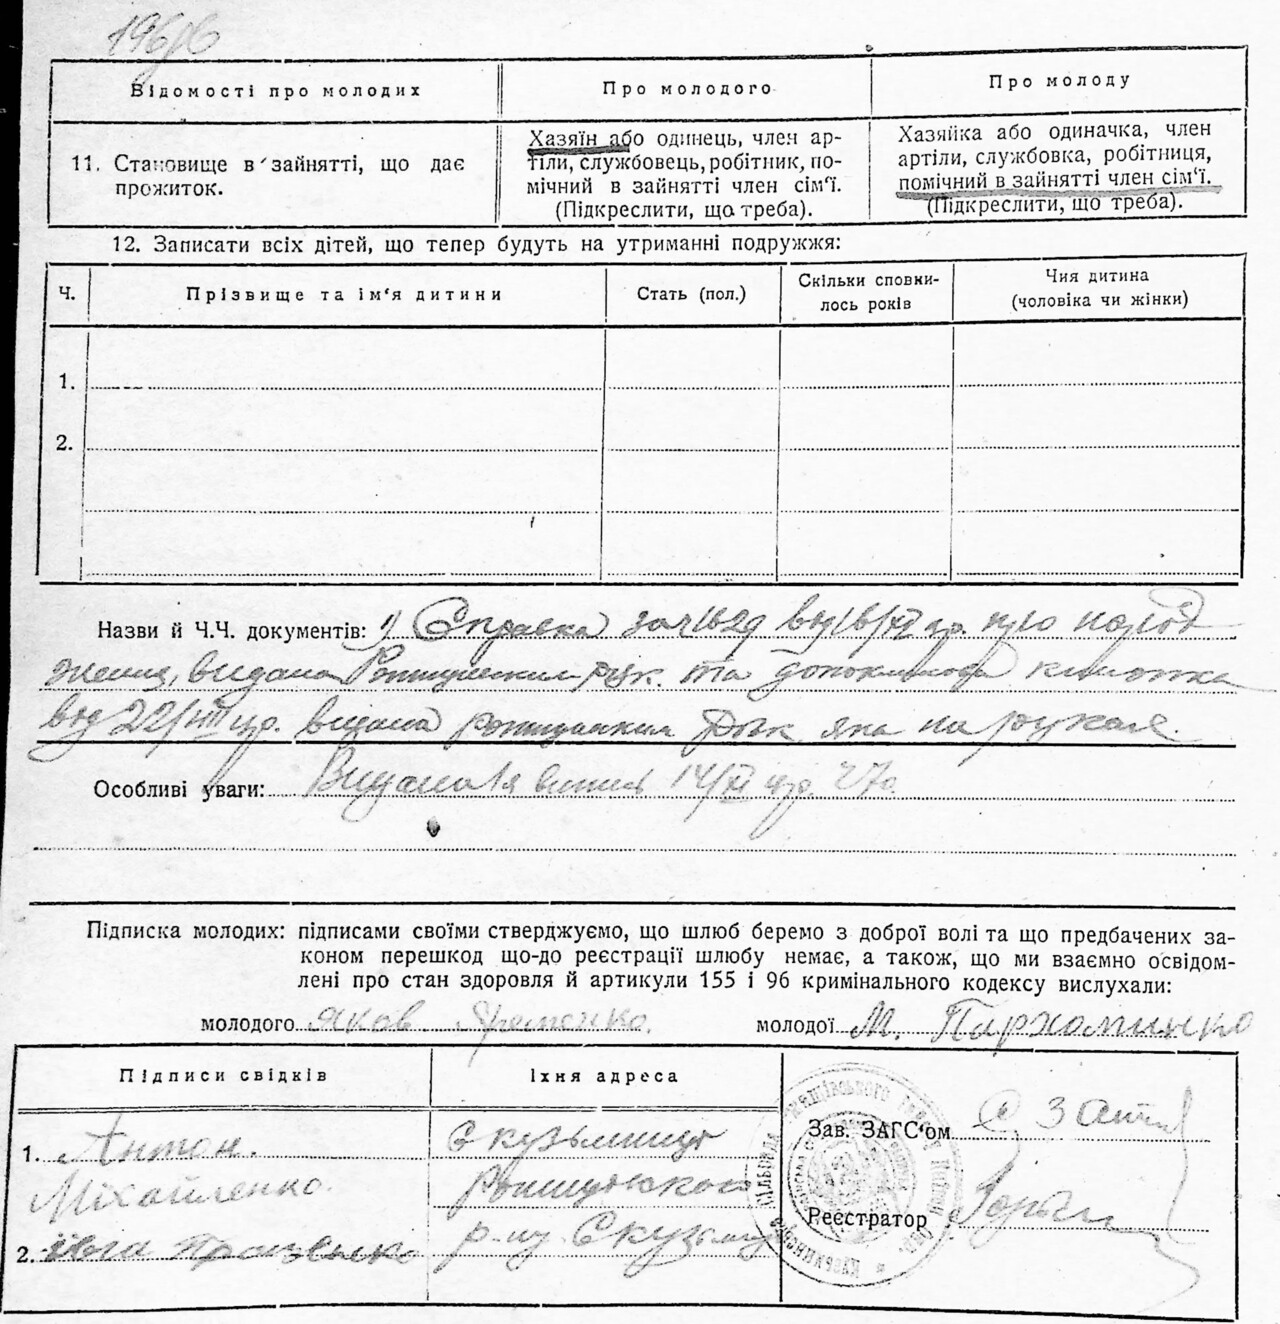 Відомості про молодих
Про молодого
Про молоду
11. Становище в зайнятті, що дає
прожиток.
Хазяїн або одинець, член ар-
тіли, службовець, робітник, по-
мічний в зайнятті член сім'ї.
(Підкреслити, що треба).
Хазяйка або одиначка, член
артіли, службовка, робітниця,
помічний в зайнятті член сім'ї.
(Підкреслити, що треба).
12. Записати всіх дітей, що тепер будуть на утриманні подружжя:
Ч.
Прізвище та ім'я дитини
Стать (пол.)
Скільки сповни-
лось років
Чия дитина
(чоловіка чи жінки)
1.
2.
Назви й Ч.Ч. документів: 1) Справка за ч 1629 від 16/XI ц.р. про народ
видана та книжка
від 22/VIII ц.р. видана яка на руках.
Особливі уваги: 14/XI ц.р.
Підписка молодих: підписами своїми стверджуємо, що шлюб беремо з доброї волі та що предбачених за-
коном перешкод що-до реєстрації шлюбу немає, а також, що ми взаємно освідом-
лені про стан здоровля й артикули 155 і 96 кримінального кодексу вислухали:
молодого Яков Яременко. молодої М. Пархоминко
Підписи свідків
Їхня адреса
1. Антон.
Міхайленко.
2.
с Кузьминці
р-ну
Зав. ЗАГС'ом
Реєстратор